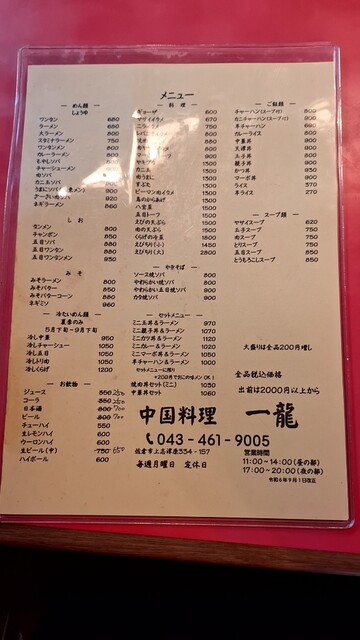 メニュー
― めん類 ―
しょうゆ
ワンタン 680
ラーメン 680
大ラーメン 800
スタミナラーメン 750
ワンタンメン 800
カレーラーメン 800
もやしソバ
チャーシューメン
肉ソバ
カニ玉ソバ
ネギラーメン 860
― しお ―
タンメン 800
チャンポン 850
五目ソバ 850
五目ワンタン 880
五目ワンタンメン 930
― みそ ―
みそラーメン 800
みそバター 850
みそバターコーン 880
ネギミソ 960
― 冷たいめん類 ―
夏季のみ
5月下旬~9月下旬
冷し中華 950
冷しチャーシュー 1050
冷し五目 1050
冷しとり肉 1050
冷しくらげ 1200
― お飲物 ―
ジュース 250
コーラ 250
日本酒 700
ビール 700
チューハイ 550
生レモンハイ 600
ウーロンハイ 600
生ビール(中) 650
ハイボール 600
― 料理 ―
ギョーザ 600
ヤサイイタメ 670
ニライタメ 750
カニ玉 1300
肉うまに 1300
すぶた 1300
ピーマン肉イタメ 1300
鳥のからあげ 1300
八宝菜 1500
五目トーフ 1500
えびの天ぷら 1500
肉の天ぷら 1500
くらげの冷菜 1800
えびチリ(小) 1450
えびチリ(大) 2800
― やきそば ―
ソース焼ソバ 800
やわらかい焼ソバ 800
やわらかい五目焼ソバ 900
カタ焼ソバ 900
― セットメニュー ―
ミニ玉丼&ラーメン 970
ミニ親子丼&ラーメン 1070
ミニカツ丼&ラーメン 1120
ミニカレー&ラーメン 1050
ミニマーボ丼&ラーメン 1050
半チャーハン&ラーメン 1000
セットメニューに限り
+200円で他の味メンOK!
焼肉丼セット(ミニ) 1050
中華丼セット 1060
― ご飯類 ―
チャーハン(スープ付) 800
カニチャーハン(スープ付) 900
半チャーハン 690
カレーライス 800
中華丼 900
天津丼 900
玉子丼 800
親子丼 900
カツ丼 950
肉丼 900
マーボ丼 900
ライス 370
半ライス 270
― スープ類 ―
ヤサイスープ 620
玉子スープ 750
肉スープ 750
とりスープ 750
五目スープ 850
とうもろこしスープ 850
大盛りは全品200円増し
全品税込価格
出前は2000円以上から
中国料理 一龍
043-461-9005
佐倉市上志津原334-157
毎週月曜日 定休日
営業時間
11:00~14:00(昼の部)
17:00~20:00(夜の部)
令和6年9月1日改正